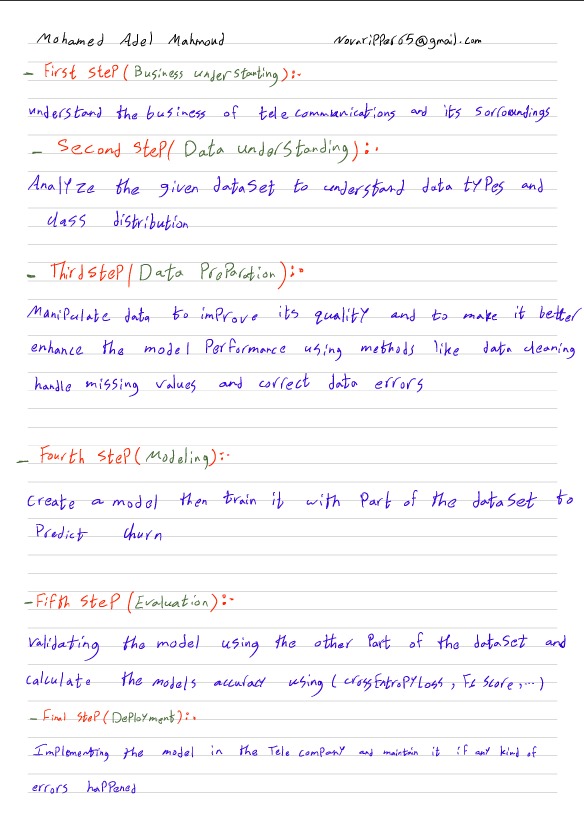 Mohamed Adel Mahmoud NovaripPer65@gmail.com
- First steP ( Business understanting ):-
understand the business of tele communications and its sorroundings
- Second steP( Data understanding ):.
Analyze the given dataset to understand data tyPes and
class distribution
- Third steP ( Data ProParation ):-
ManiPulate data to imProve its quality and to make it better
enhance the model Performance using methods like data cleaning
handle missing values and correct data errors
- Fourth steP ( Modeling ):-
Create a model then train it with Part of the dataset to
Predict churn
- Fifth steP ( Evaluation ):-
Validating the model using the other Part of the dataset and
calculate the models accuracy using ( crossEntroPyLoss , F1 Score ,... )
- Final steP ( DePloyment ):.
ImPlementing the model in the Tele comPany and maintain it if any kind of
errors haPPened